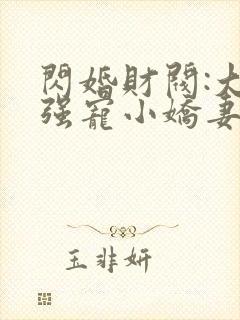 閃婚財閥:大
强寵小嬌妻
玉非妍